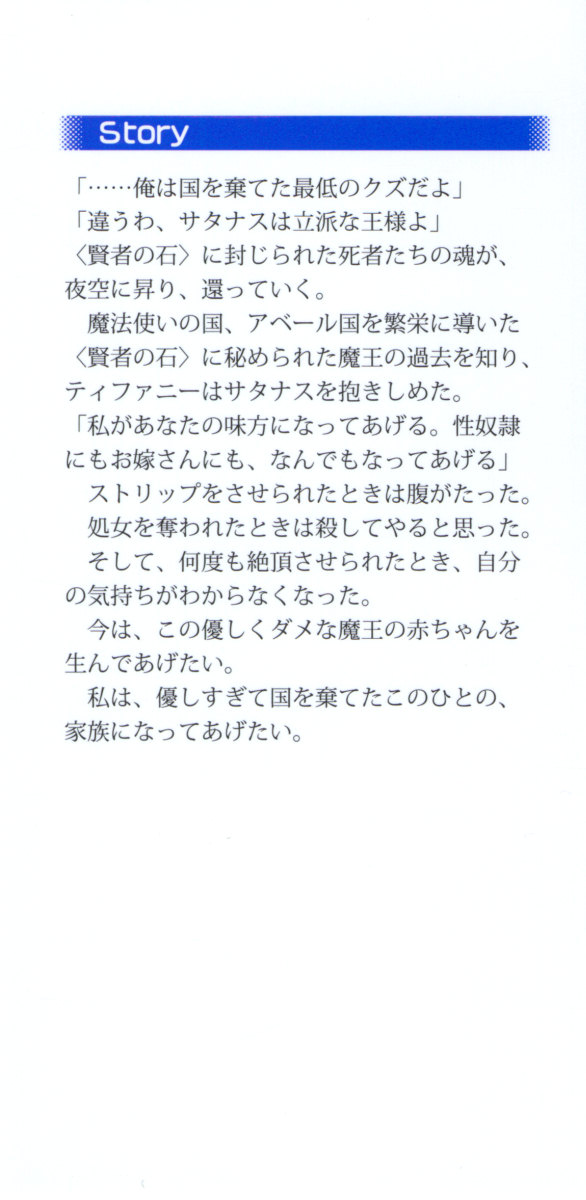 Story
「……俺は国を棄てた最低のクズだよ」
「違うわ、サタナスは立派な王様よ」
〈賢者の石〉に封じられた死者たちの魂が、
夜空に昇り、還っていく。
　魔法使いの国、アベール国を繁栄に導いた
〈賢者の石〉に秘められた魔王の過去を知り、
ティファニーはサタナスを抱きしめた。
「私があなたの味方になってあげる。性奴隷
にもお嫁さんにも、なんでもなってあげる」
　ストリップをさせられたときは腹がたった。
　処女を奪われたときは殺してやると思った。
　そして、何度も絶頂させられたとき、自分
の気持ちがわからなくなった。
　今は、この優しくダメな魔王の赤ちゃんを
生んであげたい。
　私は、優しすぎて国を棄てたこのひとの、
家族になってあげたい。